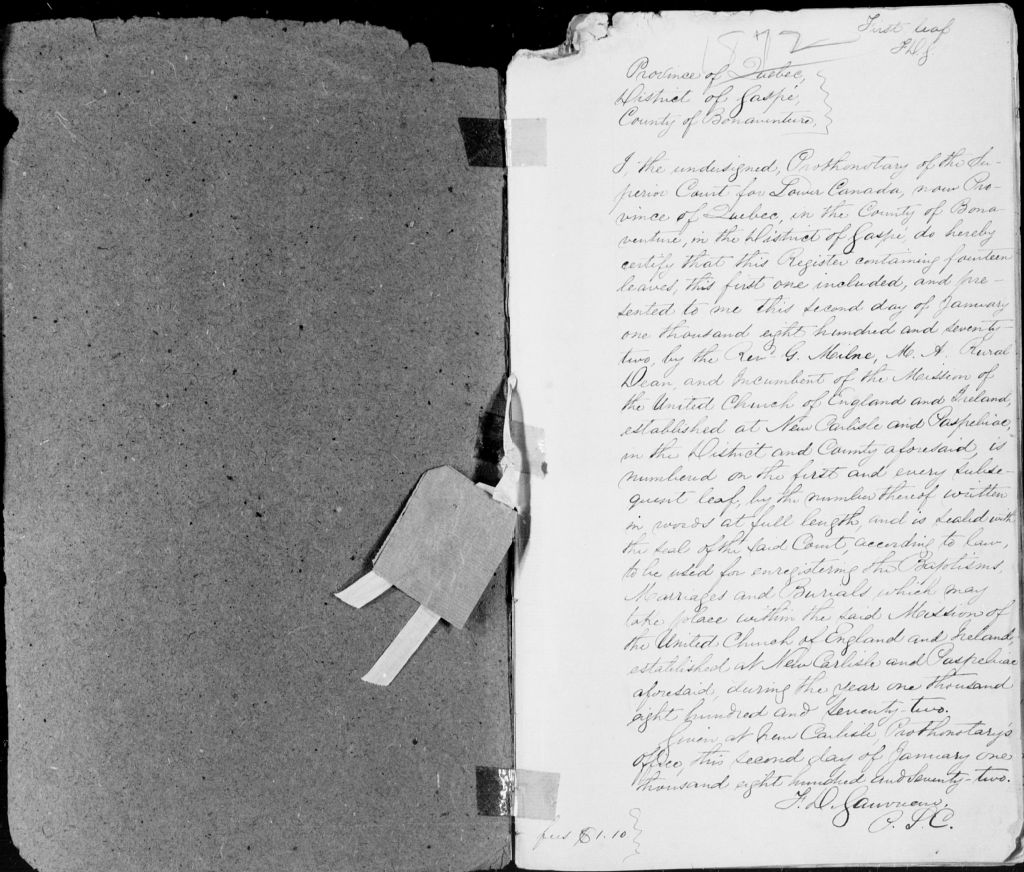 1872
First leaf
F.D.G.
Province of Quebec,
District of Gaspé,
County of Bonaventure.
I, the undersigned, Prothonotary of the Su-
perior Court for Lower Canada, now Pro-
vince of Quebec, in the County of Bona-
venture, in the District of Gaspé, do hereby
certify that this Register containing fourteen
leaves, this first one included, and pre-
sented to me this second day of January
one thousand eight hundred and seventy
two, by the Revd G. Milne, M. A. Rural
Dean, and Incumbent of the Mission of
the United Church of England and Ireland,
established at New Carlisle and Paspebiac,
in the District and County aforesaid, is
numbered on the first and every subse-
quent leaf, by the number thereof written
in words at full length, and is sealed with
the seal of the said Court, according to law,
to be used for enregistering the Baptisms,
Marriages and Burials which may
take place within the said Mission of
the United Church of England and Ireland,
established at New Carlisle and Paspebiac
aforesaid, during the year one thousand
eight hundred and seventy-two.
Given at New Carlisle, Prothonotary's
Office, this second day of January one
thousand eight hundred and seventy-two.
F. D. Gauvreau,
P. S. C.
fees $1.10